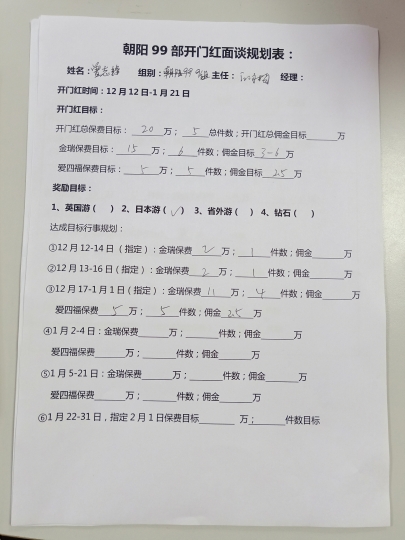 朝阳 99 部开门红面谈规划表：
姓名： 组别：朝阳99 主任： 经理：
开门红时间：12 月 12 日-1 月 21 日
开门红目标：
开门红总保费目标： 20 万； 5 总件数；开门红总佣金目标______万
金瑞保费目标： 15 万； 6 件数；佣金目标 3-6 万
爱四福保费目标： 5 万； 5 件数；佣金目标 2.5 万
奖励目标：
1、英国游（ ） 2、日本游（√） 3、省外游（ ） 4、钻石（ ）
达成目标行事规划：
①12 月 12-14 日（指定）：金瑞保费 2 万； 1 件数；佣金______万
②12 月 13-16 日（指定）：金瑞保费 2 万； 1 件数；佣金______万
③12 月 17-1 月 1 日（指定）：金瑞保费 11 万； 4 件数；佣金______万
爱四福保费 5 万； 5 件数；佣金 2.5 万
④1 月 2-4 日：金瑞保费______万；______件数；佣金______万
爱四福保费______万；______件数；佣金______万
⑤1 月 5-21 日：金瑞保费______万；______件数；佣金______万
爱四福保费______万；______件数；佣金______万
⑥1 月 22-31 日，指定 2 月 1 日保费目标______ 万；______件数目标